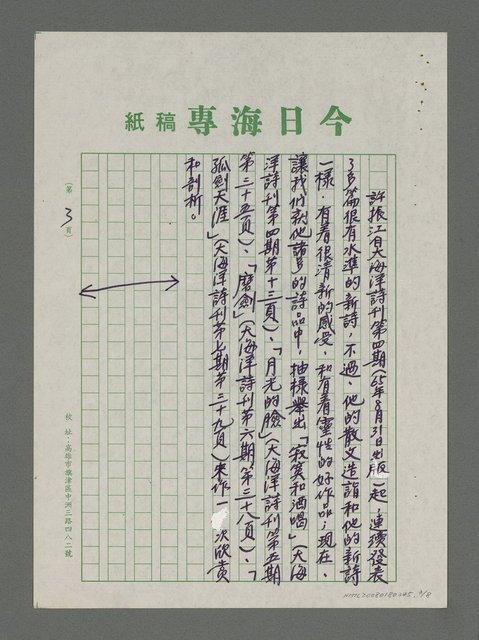 今日海專稿紙
許振江自大海洋詩刊第四期(65年8月31日出版)起,連續發表
了多篇很有水準的新詩,不過、他的散文造詣和他的新詩
一樣,有着很清新的感受,和有着靈性的好作品;現在,
讓我們就他諸多的詩品中,抽樣舉出「寂寞和酒喝」(大海
洋詩刊第四期第十三頁)、「月光的臉」(大海洋詩刊第五期
第二十五頁)、「磨劍」(大海洋詩刊第六期第二十八頁)、「
孤劍天涯」(大海洋詩刊第七期第二十九頁)來作一次欣賞
和剖析。
(第3頁)
校址:高雄市旗津區中洲三路四八二號
NMTL20080180245. 3/8